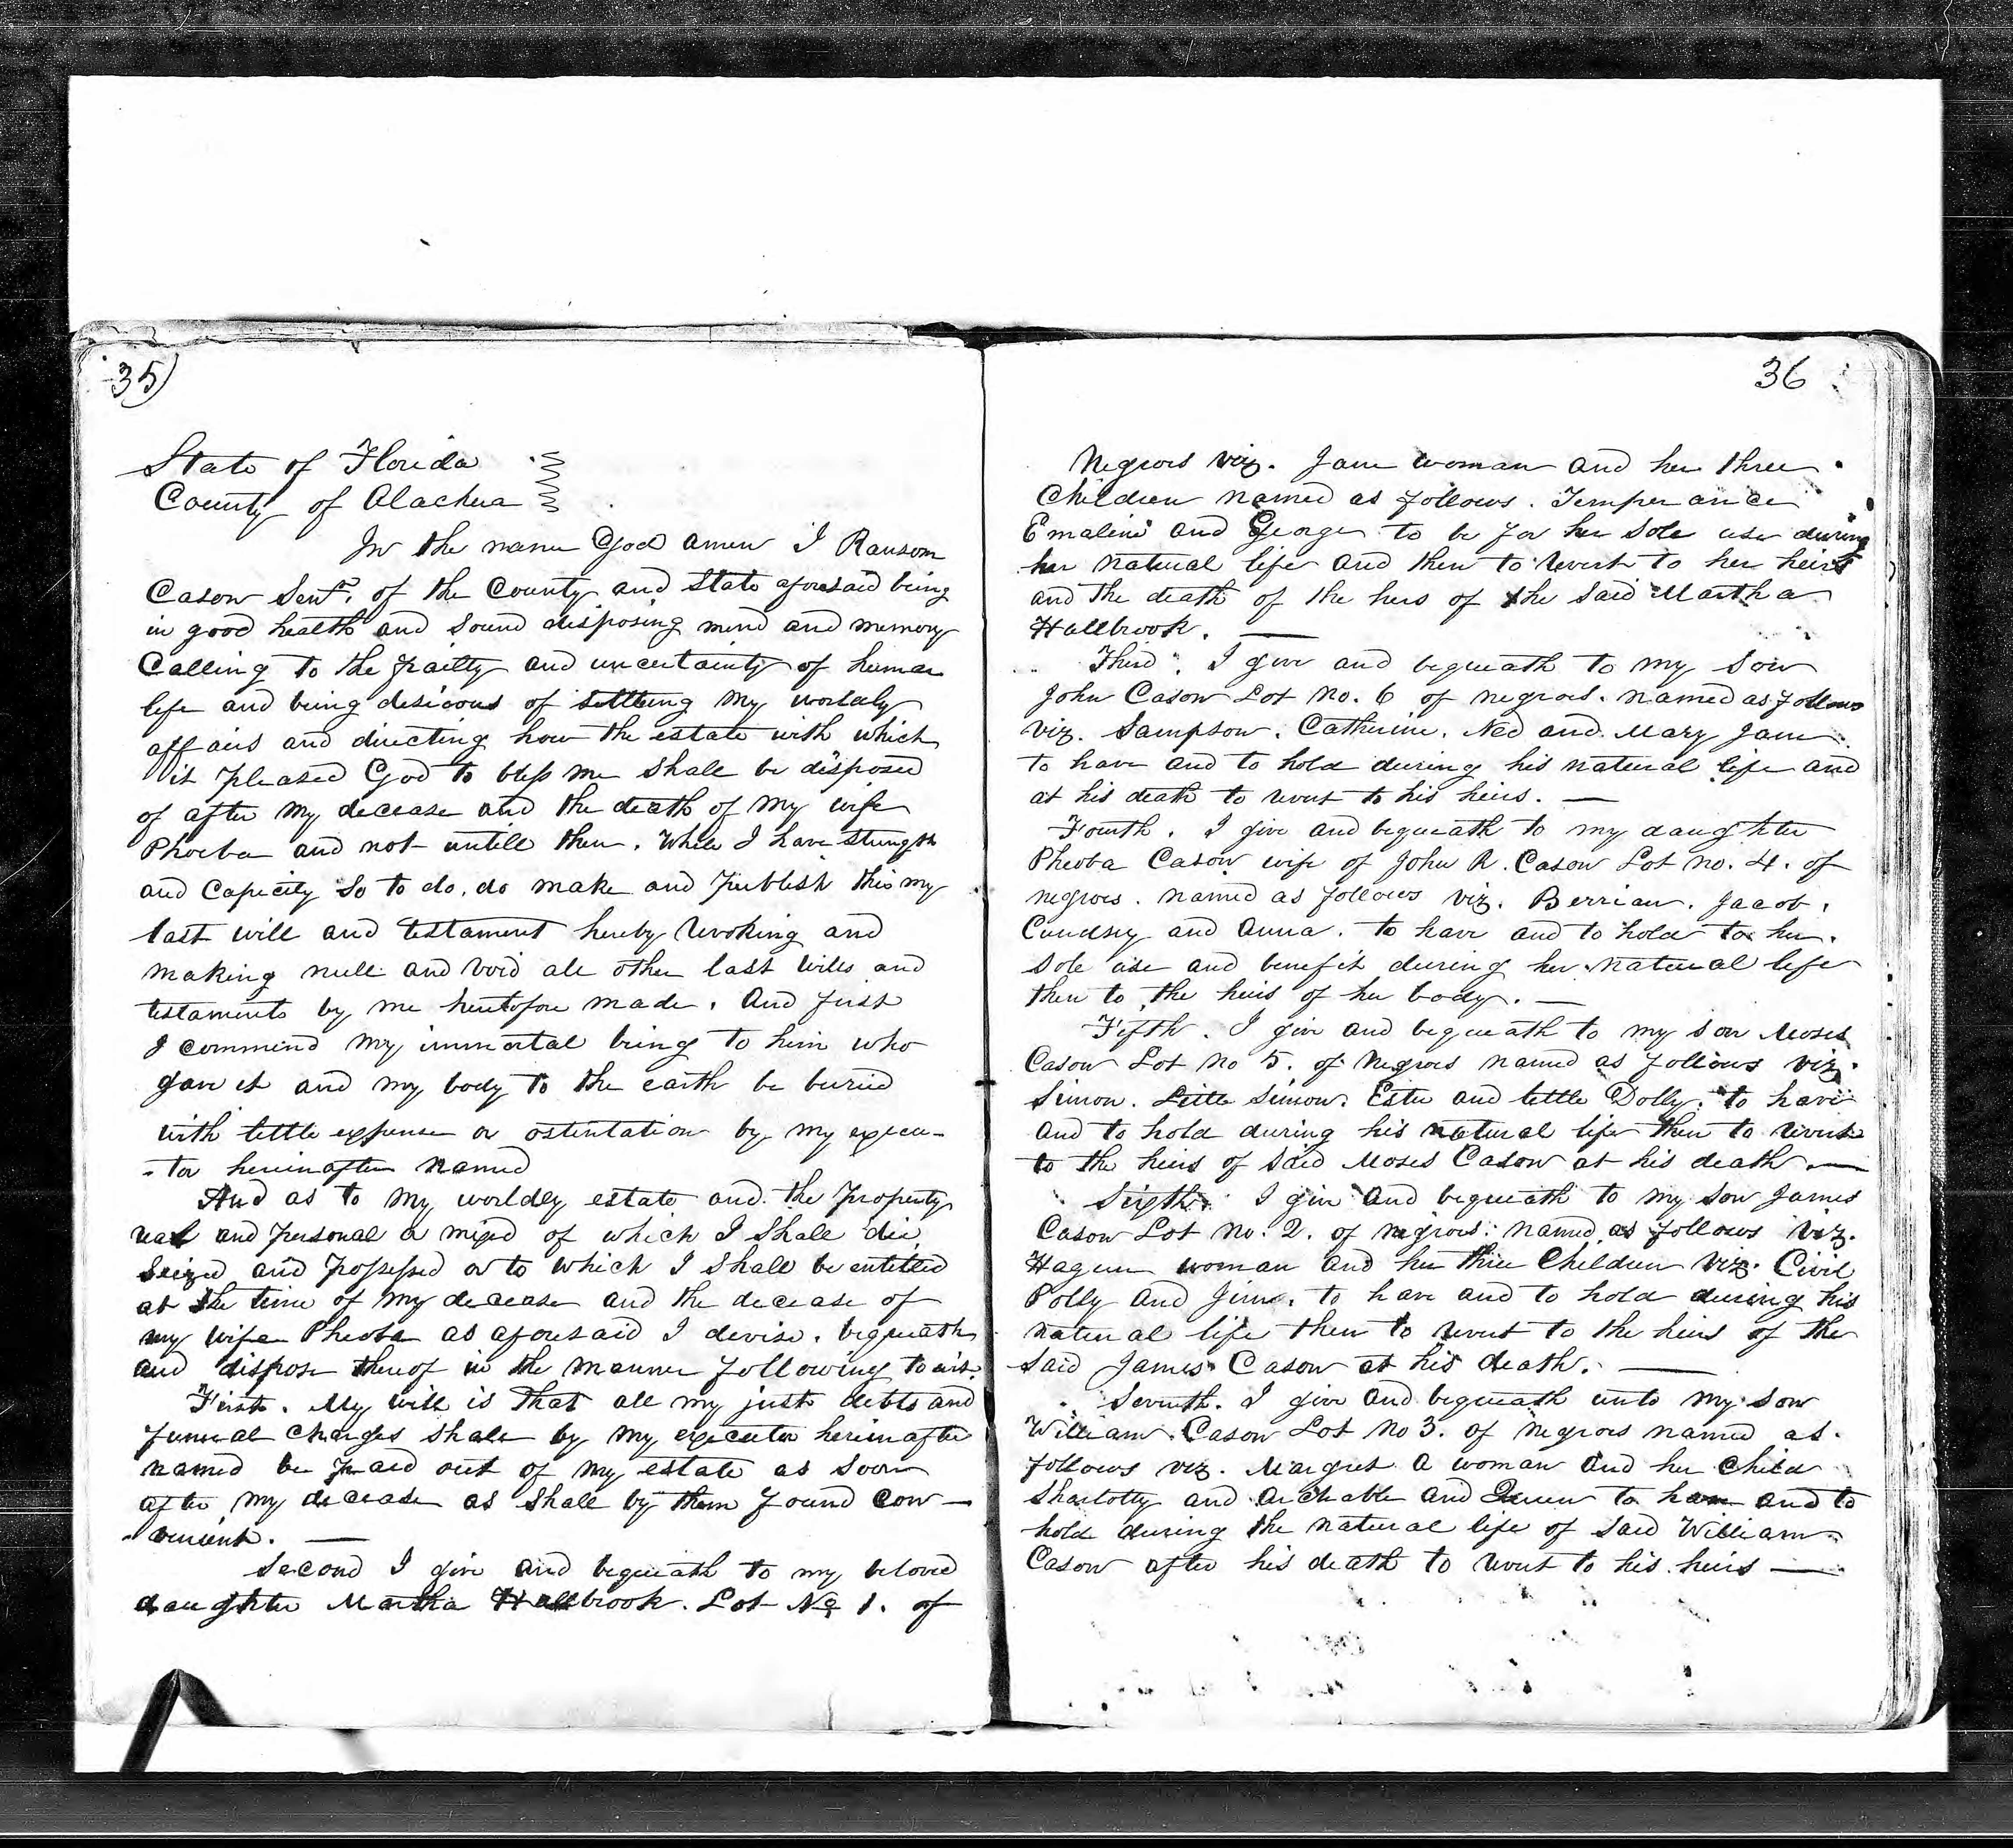 35)
State of Florida
County of Alachua
In the name God amen I Ransom
Cason Senr. of the County and State aforesaid being
in good health and Sound disposing mind and memory
Calling to the frailty and uncertainty of human
life and being desirous of settleing my worldly
affairs and directing how the estate with which
it pleased God to bless me shall be disposed
of after my decease and the death of my wife
Phoeba and not untill then. While I have strength
and Capicity So to do, do make and publish this my
last will and testament hereby revoking and
making null and void all other last wills and
testaments by me heretofore made. And first
I commend my immortal being to him who
gave it and my body to the earth be buried
with little expense or ostentation by my execu-
-tor hereinafter named
And as to my worldly estate and the property
real and personal or mixed of which I Shall die
Seized and possessed or to which I Shall be entitled
at the time of my decease and the decease of
my wife Pheoba as aforesaid I devise, bequeath
and dispose thereof in the manner following to wit.
First. My will is that all my just debts and
funeral charges shall by my executor hereinafter
named be paid out of my estate as soon
after my decease as shall by them found con-
venient.
Second I give and bequeath to my beloved
daughter Martha Hallbrook. Lot No 1. of
36
Negroes viz. Jane woman and her three
Children named as follows. Temperance
Emaline and George to be for her sole use during
her natural life and then to revert to her heirs
and the death of the heirs of the said Martha
Hallbrook.
Third. I give and bequeath to my son
John Cason Lot No. 6 of negroes. named as follows
viz. Sampson. Catherine. Ned and Mary Jane
to have and to hold during his natural life and
at his death to revert to his heirs.
Fourth. I give and bequeath to my daughter
Pheoba Cason wife of John R. Cason Lot no. 4. of
negroes. named as follows viz. Berrian. Jacob.
and Anna. to have and to hold to her
sole use and benefit during her natural life
then to the heirs of her body.
Fifth. I give and bequeath to my son Moses
Cason Lot no 5. of Negroes named as follows viz.
Simon. Little Simon. Ester and little Dolly. to have
and to hold during his natural life then to revert
to the heirs of said Moses Cason at his death.
Sixth. I give and bequeath to my son James
Cason Lot No. 2. of negroes: named as follows viz.
Hager woman and her three Children viz. Civil
Polly and Jim. to have and to hold during his
natural life then to revert to the heirs of the
said James Cason at his death.
Seventh. I give and bequeath unto my son
William Cason Lot No 3. of negroes named as
follows viz. Margret a woman and her child
Sharlotty and Archable and Queen to have and to
hold during the natural life of said William
Cason after his death to revert to his heirs